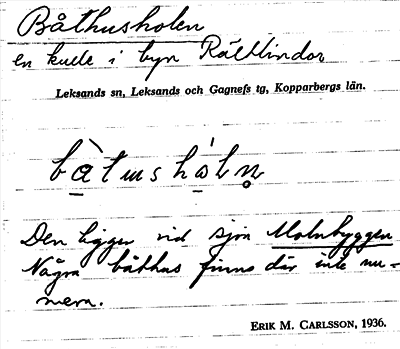 Båthusholen
en kulle i byn Rältlindor
Leksands sn, Leksands och Gagnefs tg, Kopparbergs län.
bå̀tɯshòln̥
Den ligger vid sjön Molnbyggen
Några båthus finns där inte nu-
mera.
ERIK M. CARLSSON, 1936.